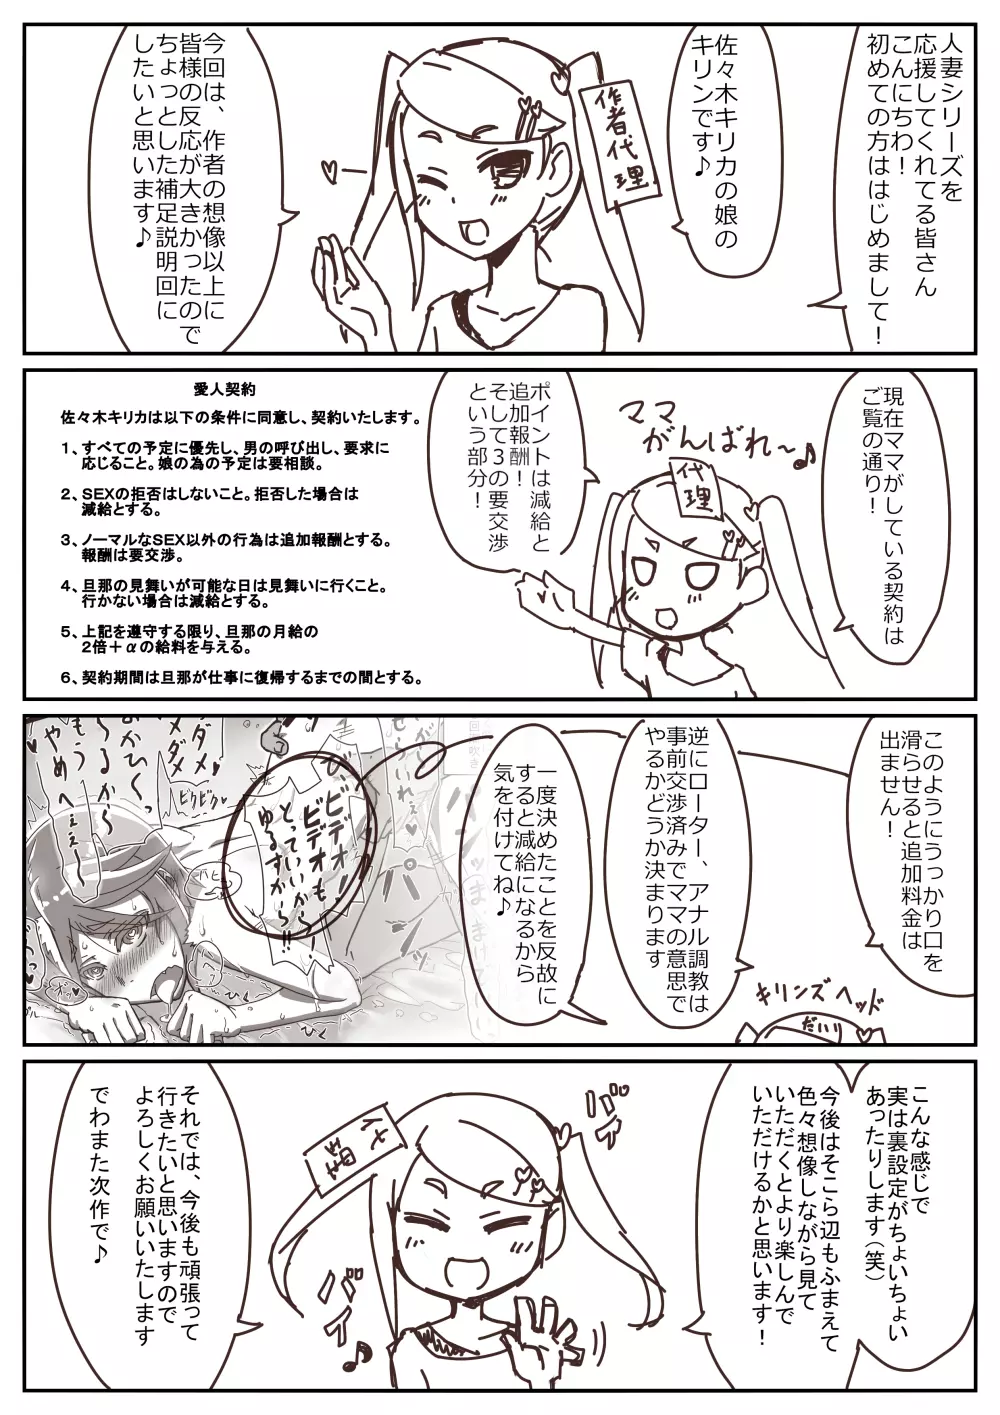 人妻シリーズを
応援してくれてる皆さん
こんにちわ！
初めての方ははじめまして！
作者代理
佐々木キリカの娘の
キリンです♪
今回は、作者の想像以上に
皆様の反応が大きかったので
ちょっとした補足説明回に
したいと思います♪
現在ママがしている契約は
ご覧の通り！
ママ
がんばれ〜♪
代理
ポイントは減給と
追加報酬！
そして３の要交渉
という部分！
愛人契約
佐々木キリカは以下の条件に同意し、契約いたします。
１、すべての予定に優先し、男の呼び出し、要求に
応じること。娘の為の予定は要相談。
２、ＳＥＸの拒否はしないこと。拒否した場合は
減給とする。
３、ノーマルなＳＥＸ以外の行為は追加報酬とする。
報酬は要交渉。
４、旦那の見舞いが可能な日は見舞いに行くこと。
行かない場合は減給とする。
５、上記を遵守する限り、旦那の月給の
２倍＋αの給料を与える。
６、契約期間は旦那が仕事に復帰するまでの間とする。
このようにうっかり口を
滑らせると追加料金は
出ません！
キリンズヘッド
だいり
逆にローター、アナル調教は
事前交渉済みでママの意思で
やるかどうか決まります
一度決めたことを反故に
すると減給になるから
気を付けてね♪
ビデオ！
ビデオも
とっていいから〜！
ゆるすから〜!!
ダメ
ダメ
ビクビク
もう
やめへぇぇ〜
びくっ
こんな感じで
実は裏設定がちょいちょい
あったりします（笑）
今後はそこら辺もふまえて
色々想像しながら見て
いただくとより楽しんで
いただけるかと思います！
バ
バイ♪
それでは、今後も頑張って
行きたいと思いますので
よろしくお願いいたします
でわまた次作で♪